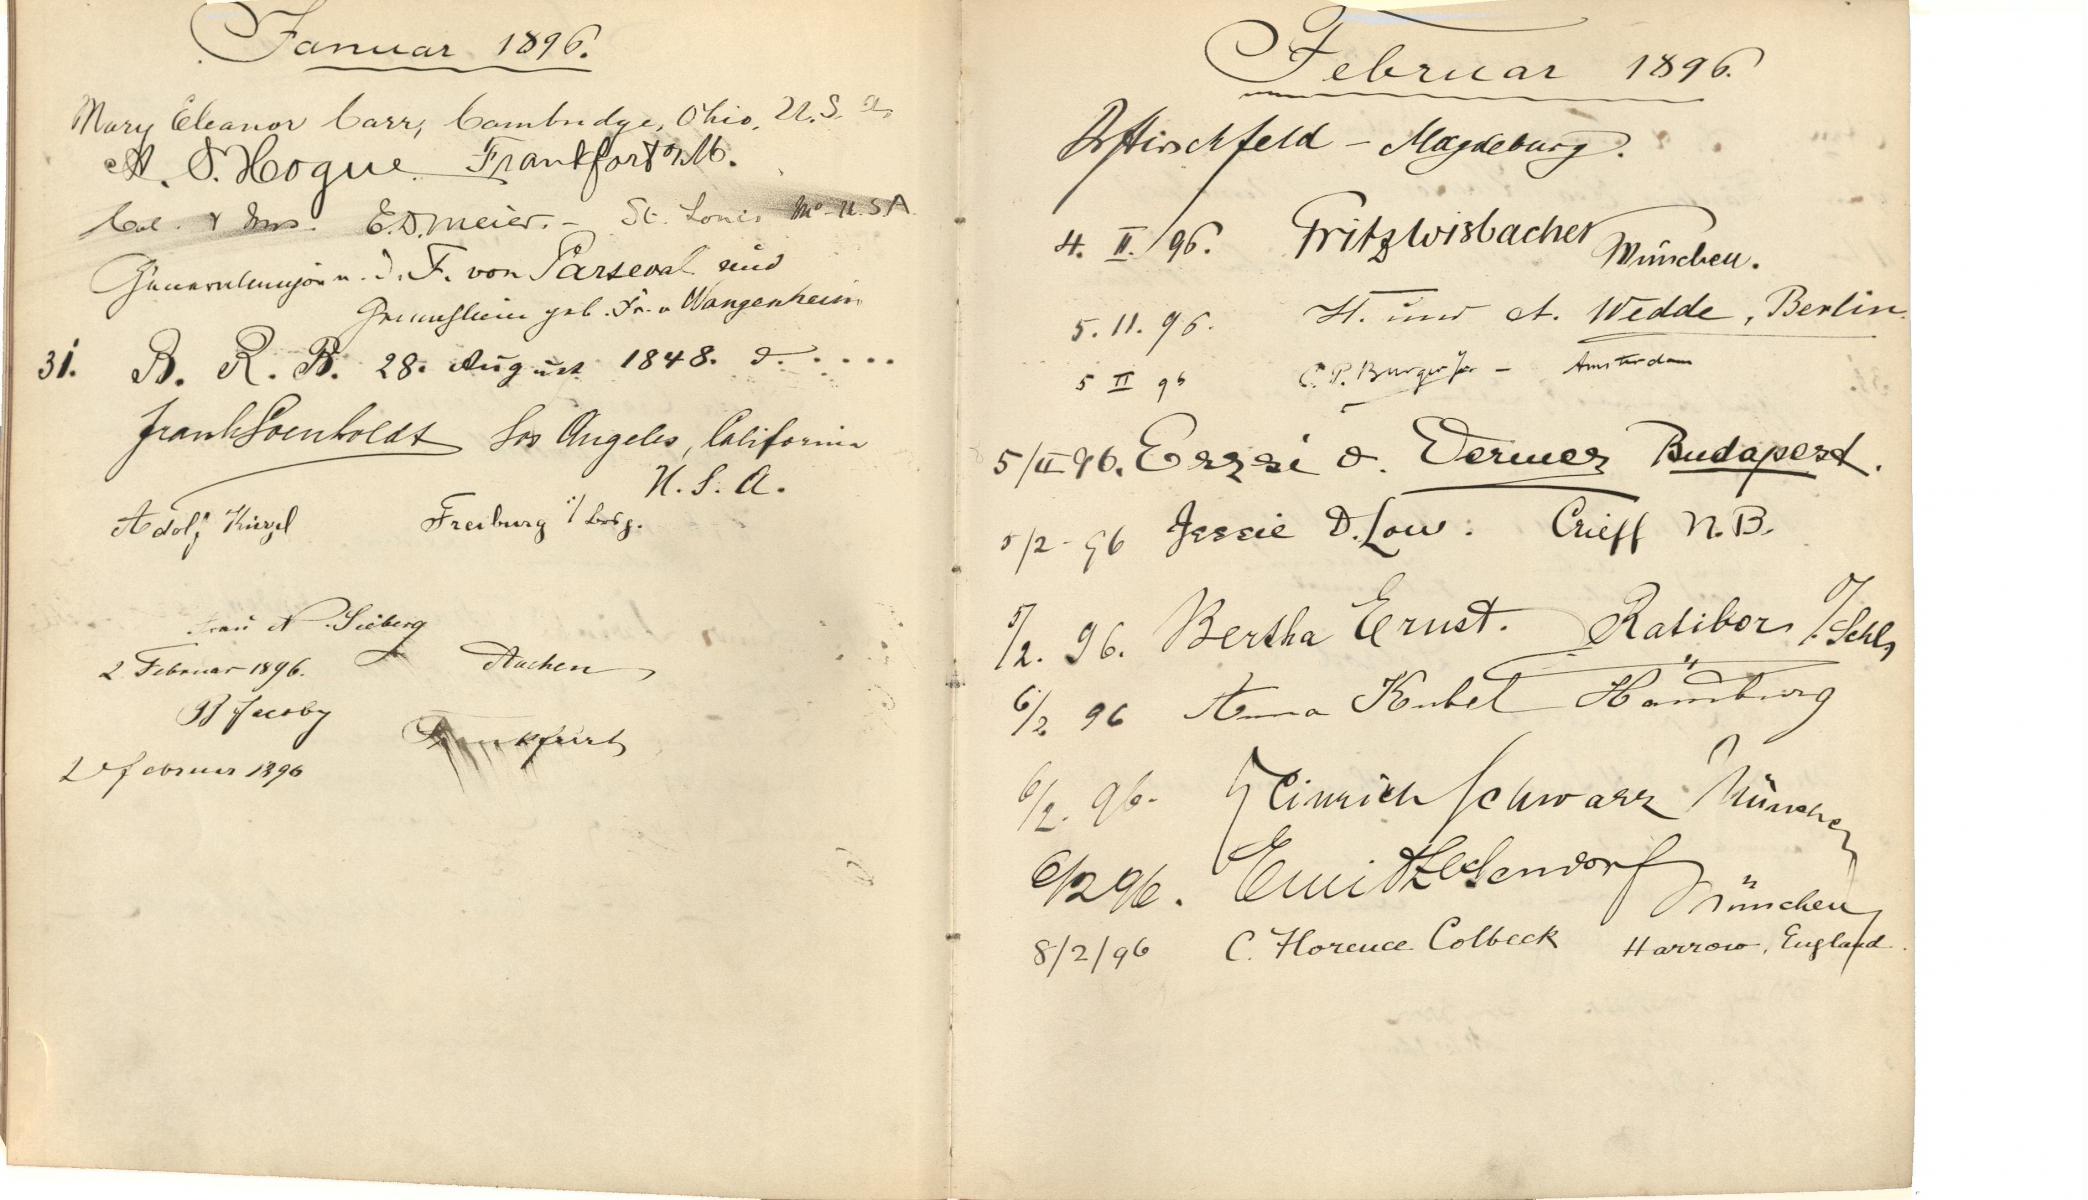 Januar 1896.
Mary Eleanor Carr, Cambridge, Ohio, U.S.A.
A. S. Hogue Frankfort a/M.
Col. & Mrs. E.D. Meier. - St. Louis Mo - U.S.A
Generalmajor a. D. F. von Parseval und
Gemahlin geb. Fr. v Wangenheim
31. B. R. B. 28. August 1848. d. . . . .
Frank Loenholdt Los Angeles, California
U. S. A.
Adolf Freiburg i/
Frau N. Sieberg
2 Februar 1896. Aachen
B Jacoby
Frankfurt
2 Februar 1896
Februar 1896.
Dr Hirschfeld - Magdeburg.
4. II. 96. Fritz Wisbacher
München.
5. II. 96. H. und A. Wedde, Berlin.
5 II 96 C. P. Burger Jr - Amsterdam
5/II 96. Erzsi d. Budapest.
5/2 - 96 Jessie D. Low. Crieff N.B.
5/2. 96. Bertha Ernst. Ratibor O/. Schl.
6/2 96 Anna Kubel Hamburg
6/2. 96. Heinrich Schwarz München
6/2 96. München
8/2/96 C. Florence Colbeck Harrow, England.